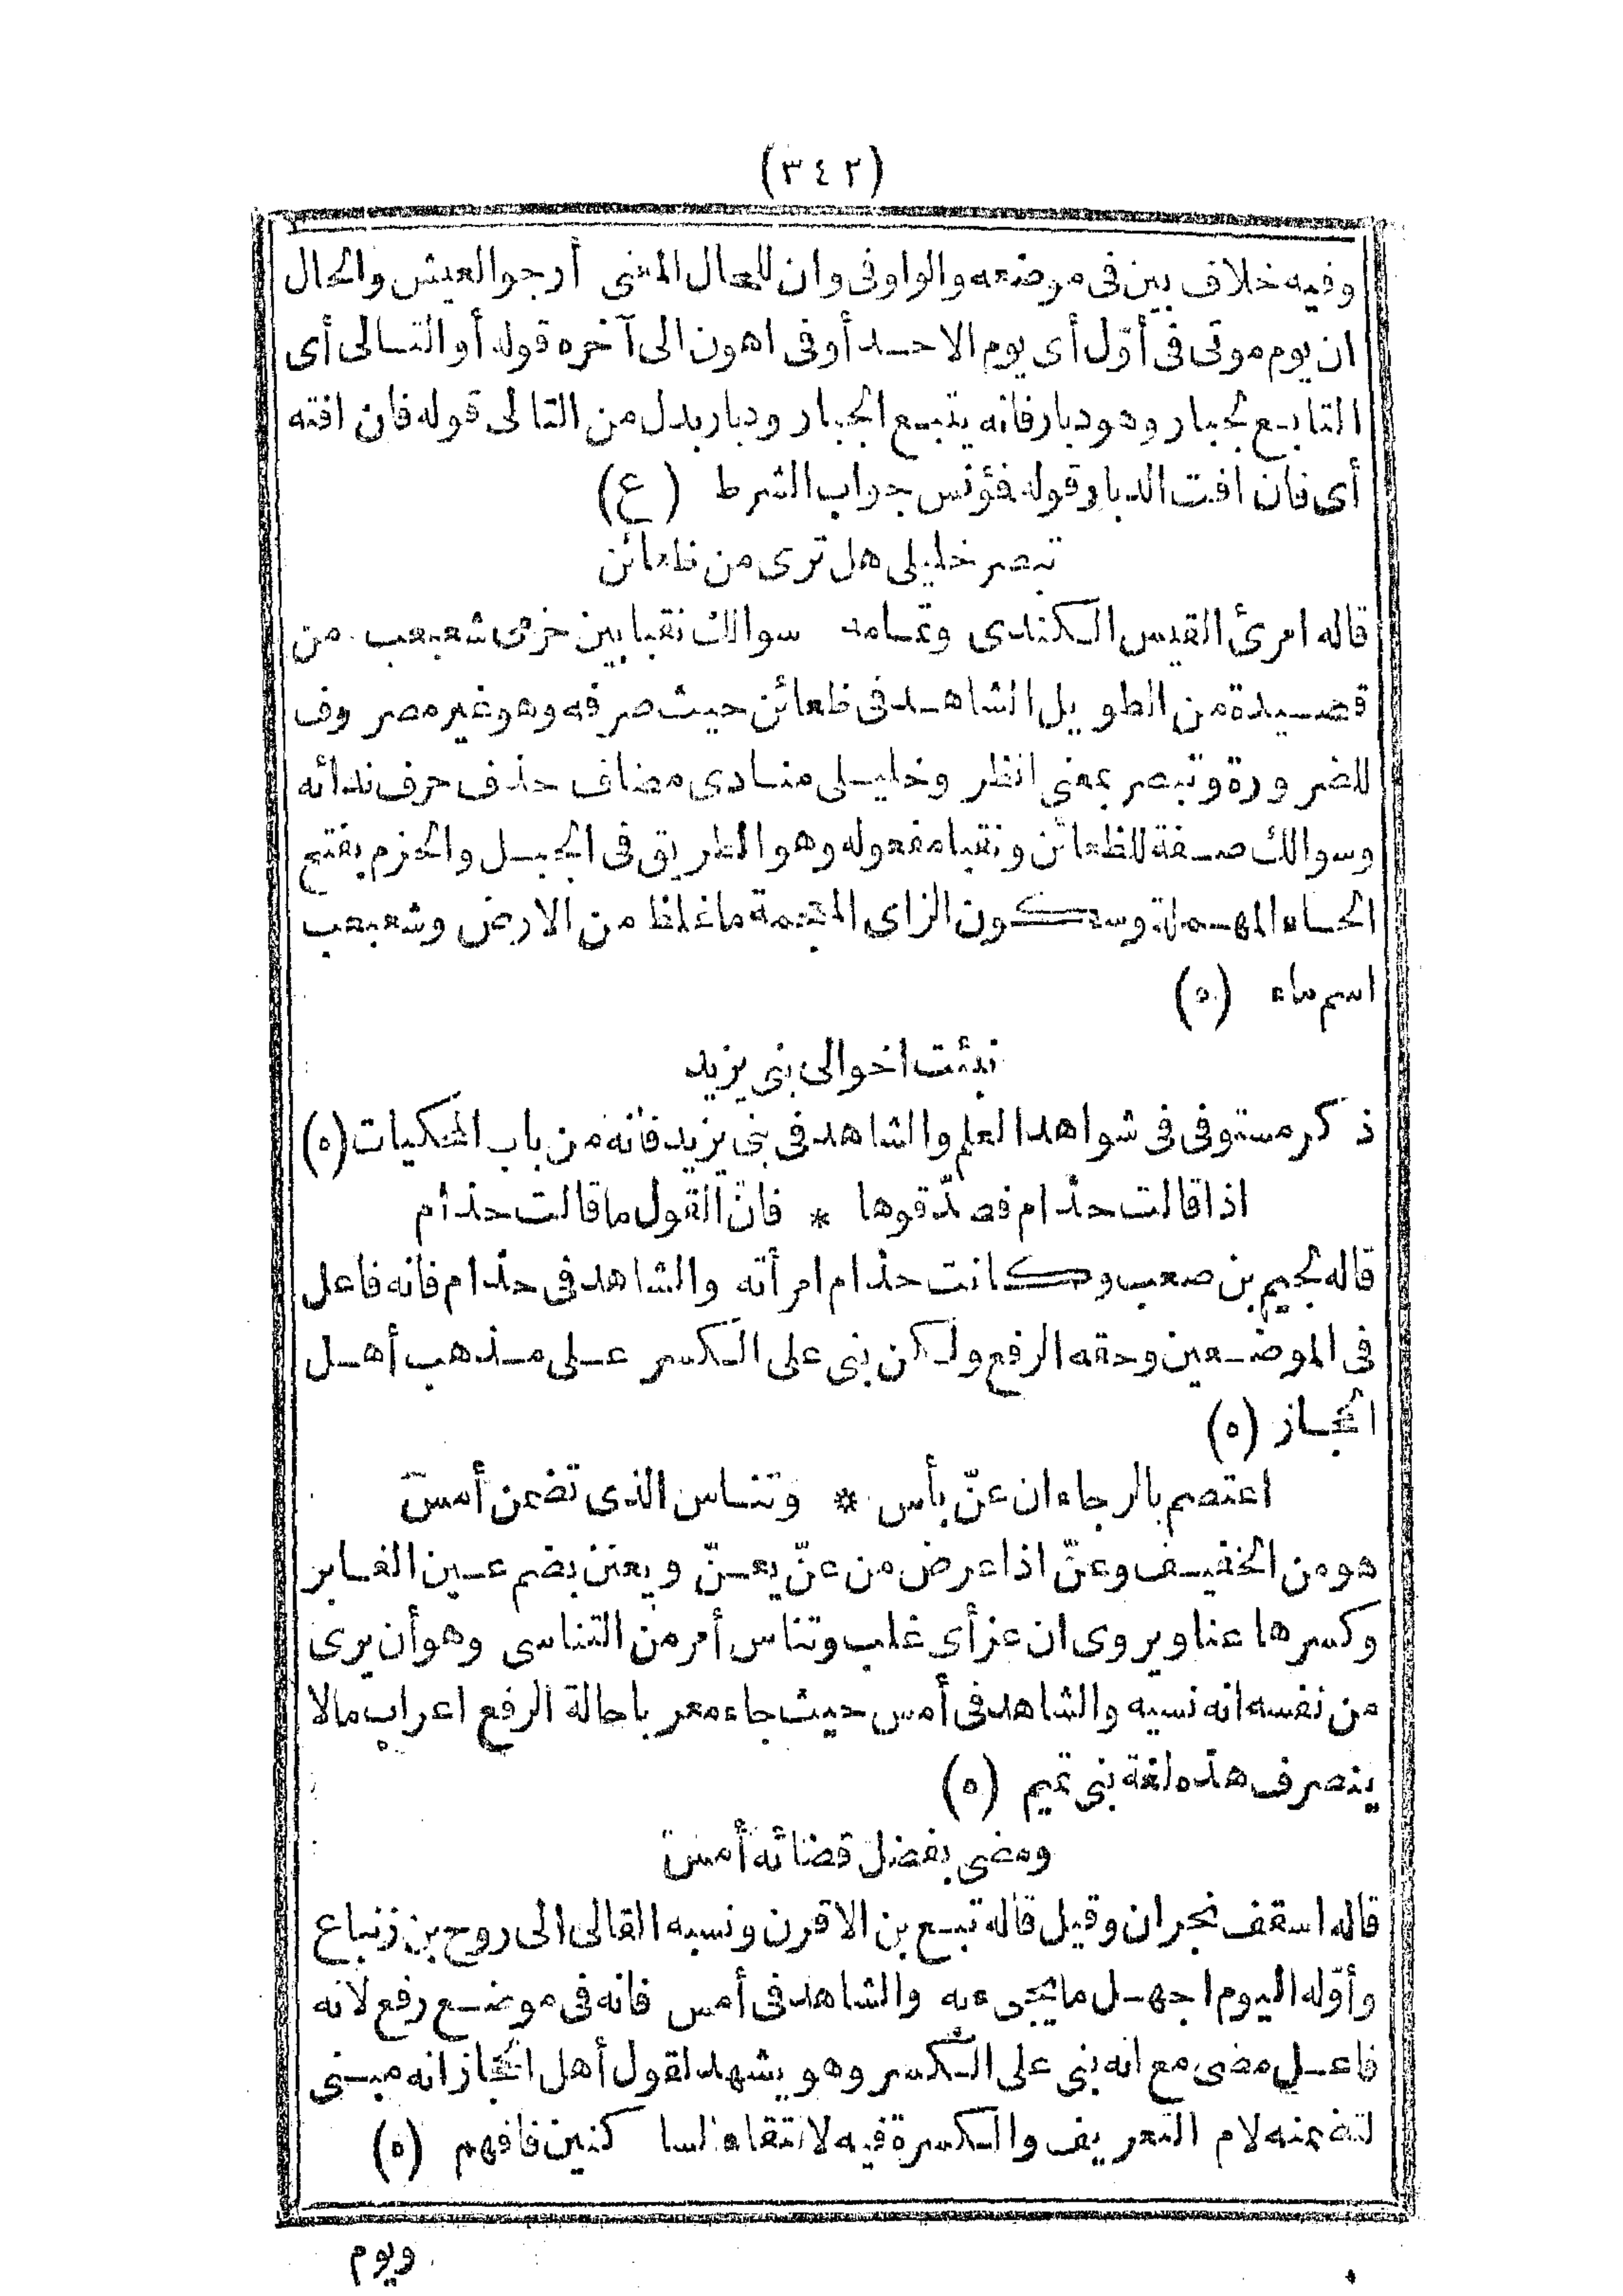 (٣٤٢)
وفيه خلاف بين فى موضعه والواو فى وان للحال المعنى أرجو العيش والحال
ان يوم موتى فى أوّل أى يوم الاحد أو فى اهون الى آخره قوله أو التالى أى
التابع لجبار وهو دبار فانه يتبع الجبار ودبار بدل من التالى قوله فان افته
أى فان افت الدبار وقوله فؤنس جواب الشرط (ع)
تبصر خليلى هل ترى من ظعائن
قاله امرئ القيس الكندى وتمامه سوالك نقبا بين حزمى شعبعب من
قصيدة من الطويل الشاهد فى ظعائن حيث صرفه وهو غير مصروف
للضرورة وتبصر بمعنى انظر وخليلى منادى مضاف حذف حرف ندائه
وسوالك صفة للظعائن ونقبا مفعوله وهو الطريق فى الجبل والحزم بفتح
الحاء المهملة وسكون الزاى المعجمة ما غلظ من الارض وشعبعب
اسم ماء (ه)
نبئت اخوالى بنى يزيد
ذكر مستوفى فى شواهد العلم والشاهد فى بنى يزيد فانه من باب المحكيات (ه)
اذا قالت حذام فصدّقوها * فانّ القول ما قالت حذام
قاله لجيم بن صعب وكانت حذام امرأته والشاهد فى حذام فانه فاعل
فى الموضعين وحقه الرفع ولكن بنى على الكسر على مذهب أهل
الحجاز (ه)
اعتصم بالرجاء ان عنّ بأس * وتناس الذى تضمن أمس
هو من الخفيف وعنّ اذا عرض من عنّ يعنّ ويعنن بضم عين الغابر
وكسرها عنا ويروى ان عز أى غلب وتناس أمر من التناسى وهو أن يرى
من نفسه انه نسيه والشاهد فى أمس حيث جاء معربا حالة الرفع اعراب مالا
ينصرف هذه لغة بنى تميم (ه)
ومضى بفضل قضائه أمس
قاله اسقف نجران وقيل قاله تبع بن الاقرن ونسبه القالى الى روح بن زنباع
وأوّله اليوم اجهل ما يجىء به والشاهد فى أمس فانه فى موضع رفع لانه
فاعل مضى مع انه بنى على الكسر وهو يشهد لقول أهل الحجاز انه مبنى
لتضمنه لام التعريف والكسرة فيه لالتقاء السا كنين فافهم (ه)
ويوم